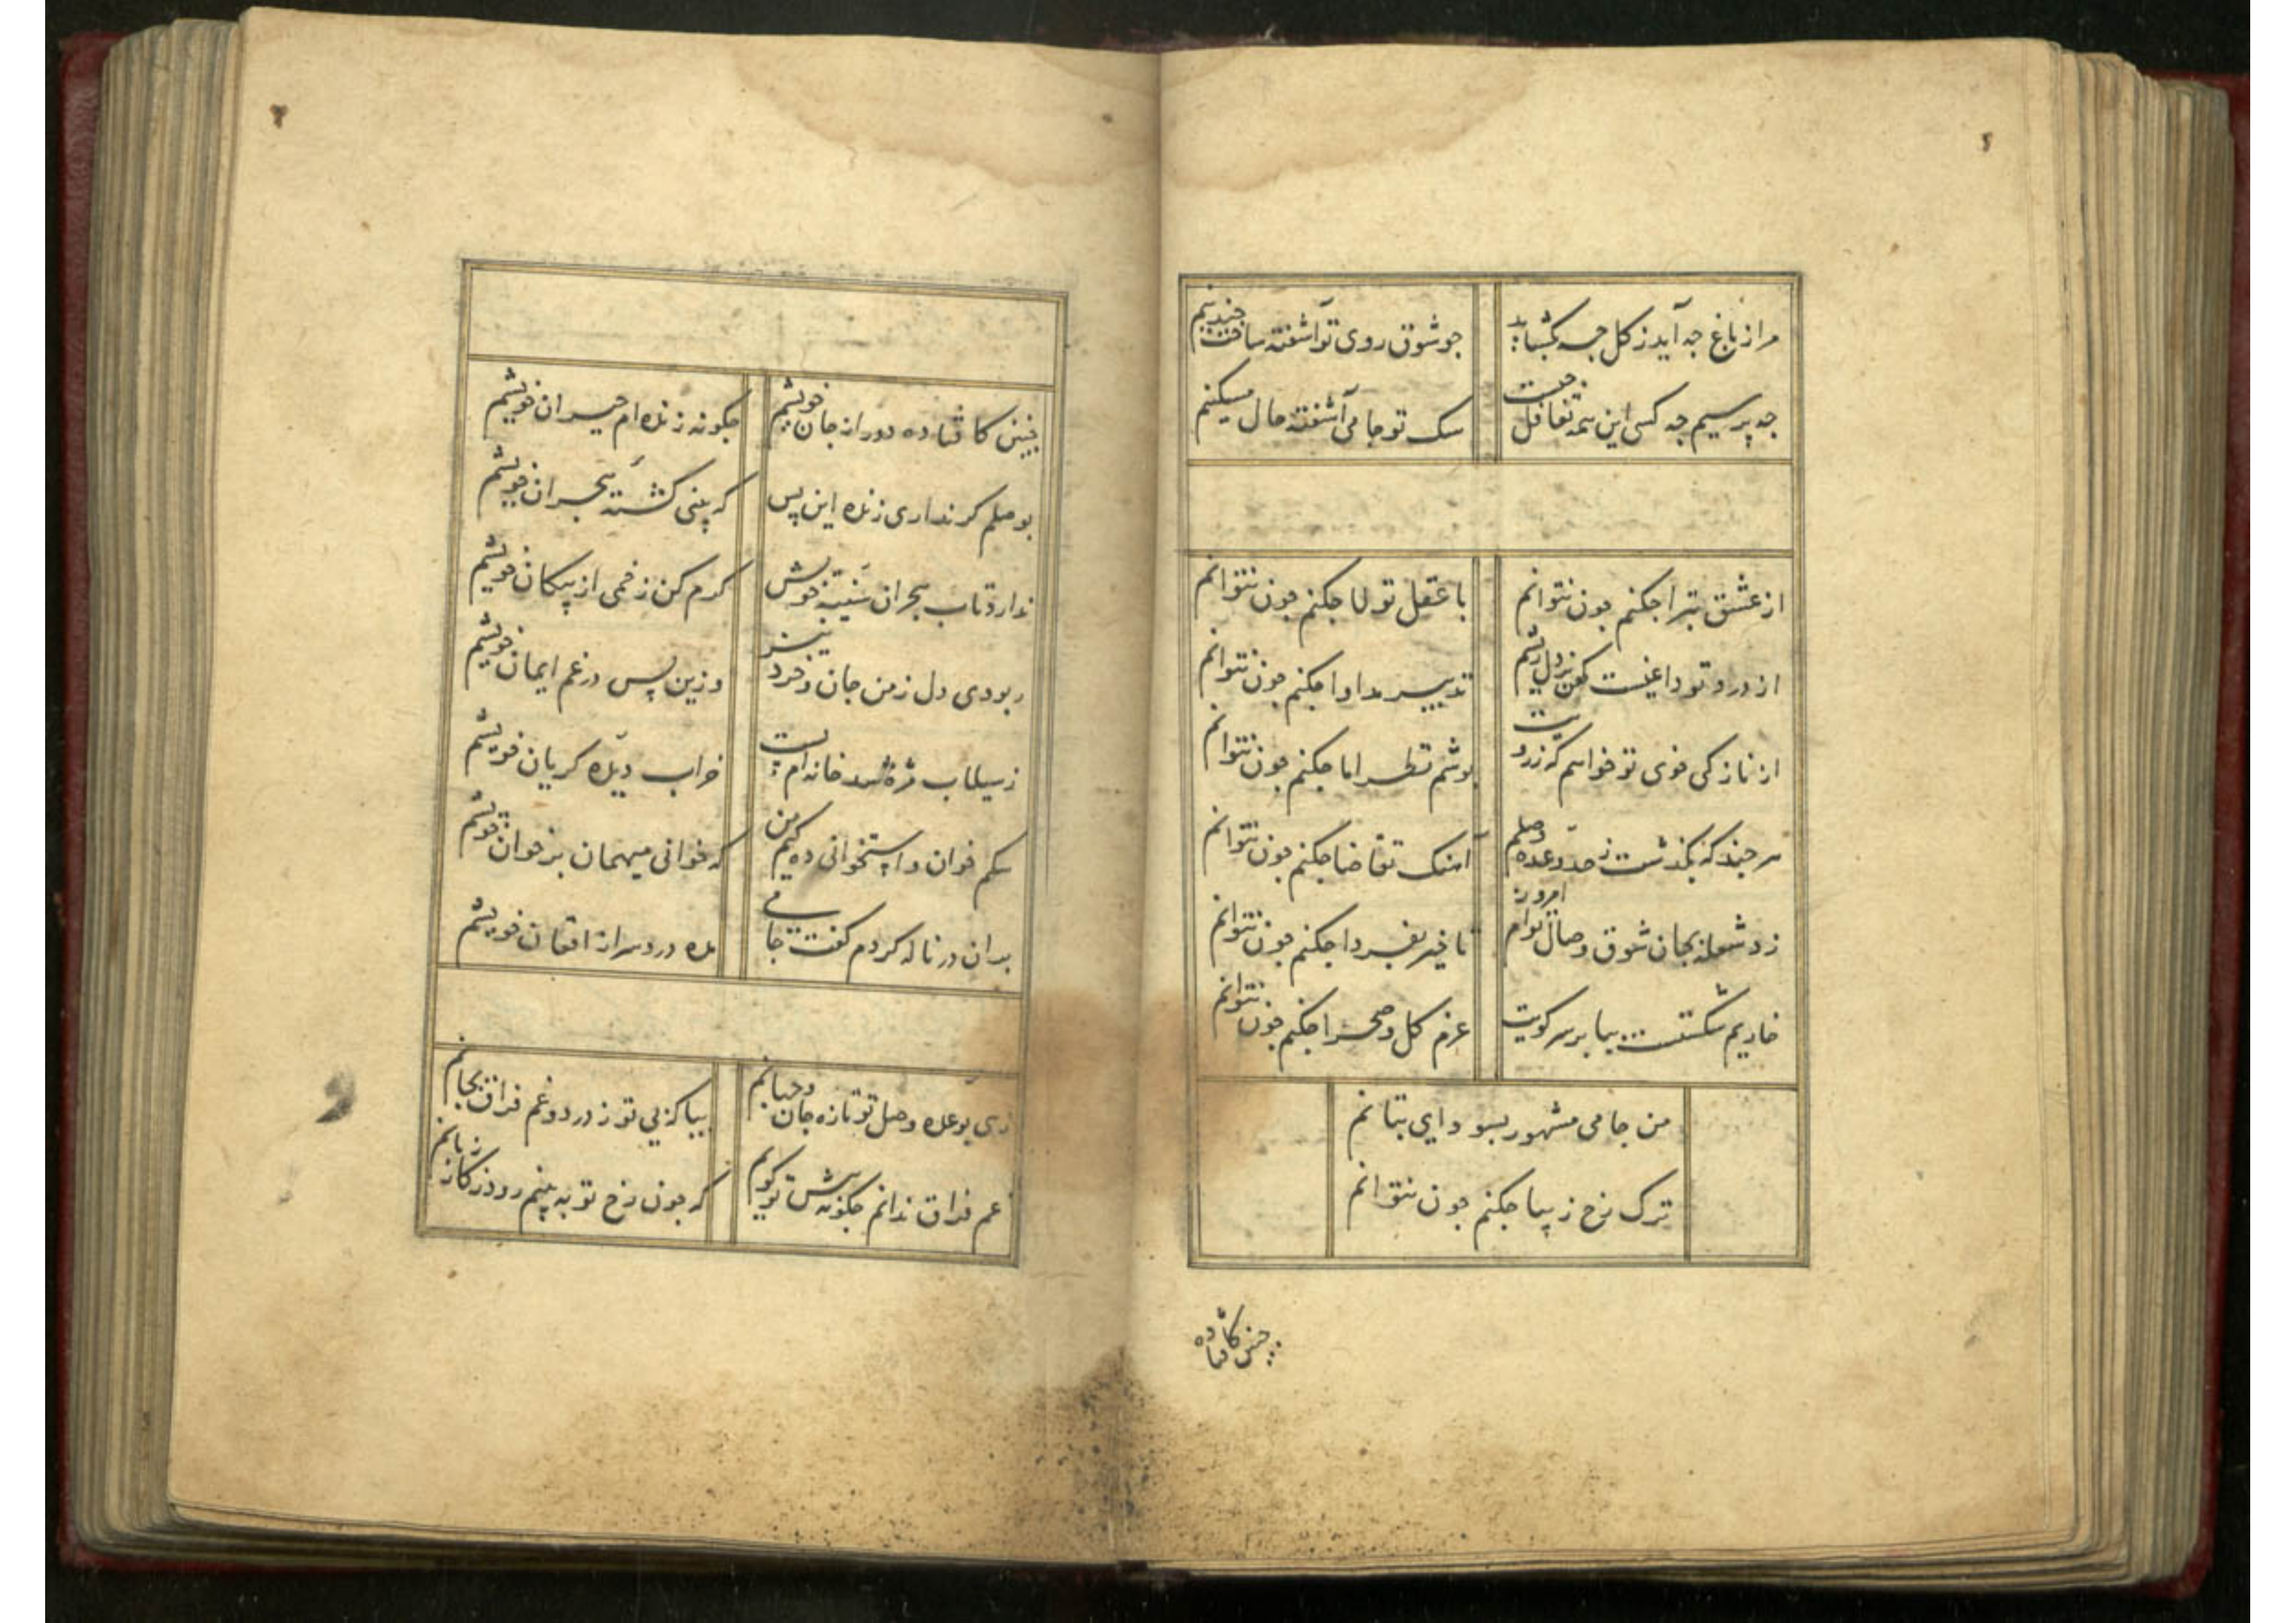 مرا ز باغ چه آید ز گل چه بگشاید
چو شوق روی تو آشفته ساخت چندینم
چه پرسیم چه کسی این همه تغافل چیست
سگ تو جامی آشفته حال مسکینم
از عشق تبرا چکنم چون نتوانم
با عقل تولا چکنم چون نتوانم
از درد تو داغیست کهن بر دل ریشم
تدبیر مداوا چکنم چون نتوانم
از نازکی خوی تو خواهم که ز رویت
پوشم نظر اما چکنم چون نتوانم
هر چند که بگذشت ز حد وعده وصلم
آهنگ تقاضا چکنم چون نتوانم
زد شعله بجان شوق وصال توام امروز
تاخیر بفردا چکنم چون نتوانم
خاریم شکستست بپا بر سر کویت
عزم گل و صحرا چکنم چون نتوانم
من جامی مشهور بسودای بتانم
ترک رخ زیبا چکنم چون نتوانم
چنین کافتاده
چنین کافتاده دور از جان خویشم
چگونه زنده ام حیران خویشم
بوصلم گر نداری زنده این پس
که بینی کشته هجران خویشم
ندارد تاب هجران سینه خویش
کرم کن زخمی از پیکان خویشم
ربودی دل ز من جان و خرد نیز
وزین پس در غم ایمان خویشم
ز سیلاب مژه شد خانه ام پست
خراب دیده گریان خویشم
سگم خوان و استخوانی ده کیم من
که خوانی میهمان بر خوان خویشم
بدان در ناله کردم گفت جامی
مده درد سر از افغان خویشم
زهی بوعده وصل تو تازه جان و جهانم
بیا که بی تو ز درد و غم فراق بجانم
غم فراق ندانم چگونه پیش تو گویم
که چون رخ تو به بینم رود ز کار زبانم